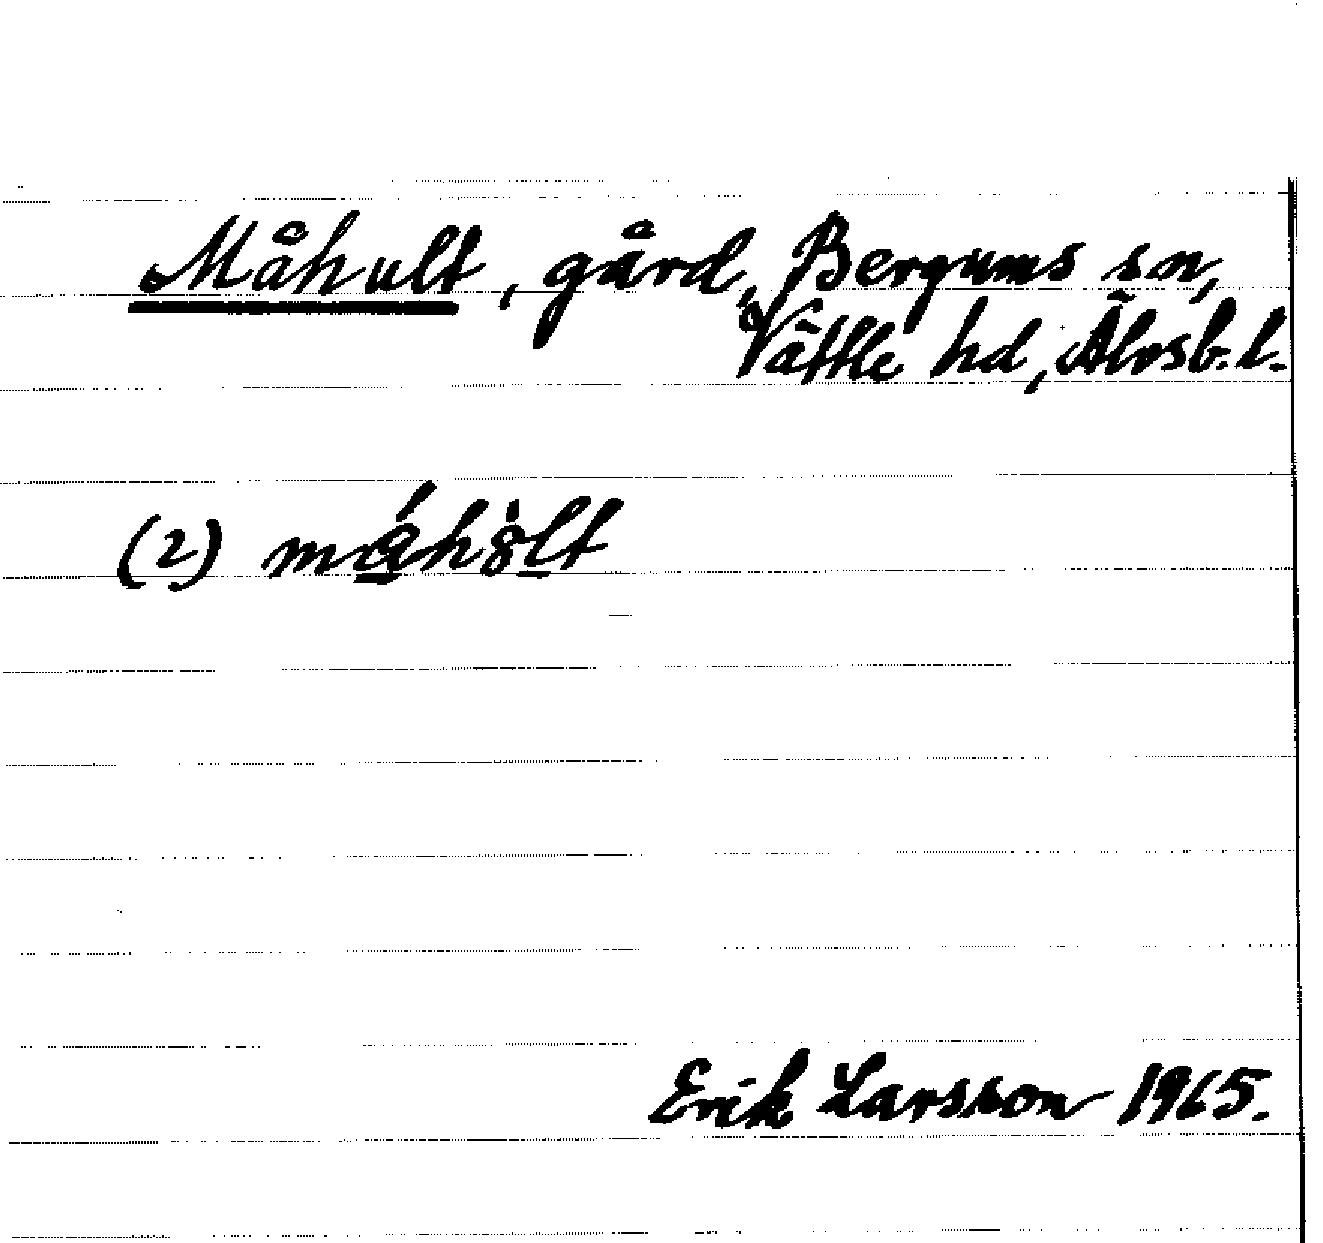 Måhult, gård, Bergums sn,
Vättle hd, Älvsb. l.
(2)
Erik Larsson 1965.